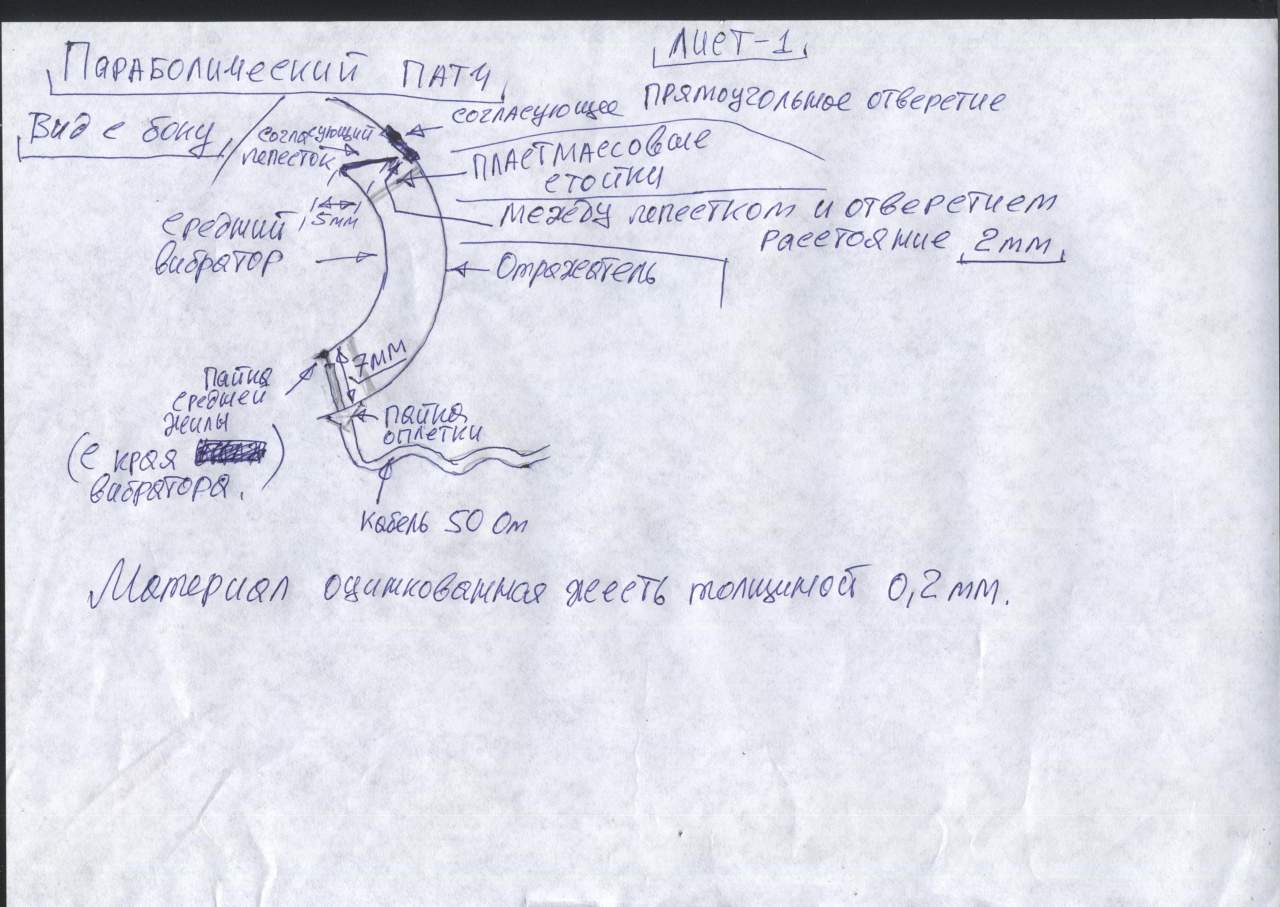 Лист-1.
Параболический патч
Вид с боку
согласующее прямоугольное отверстие
согласующий
лепесток
пластмассовые
стойки
5мм
между лепестком и отверстием
расстояние 2мм.
средний
вибратор
Отражатель
7мм
пайка
средней
жилы
(с края
вибратора.)
пайка
оплетки
кабель 50 Ом
Материал оцинкованная жесть толщиной 0,2мм.